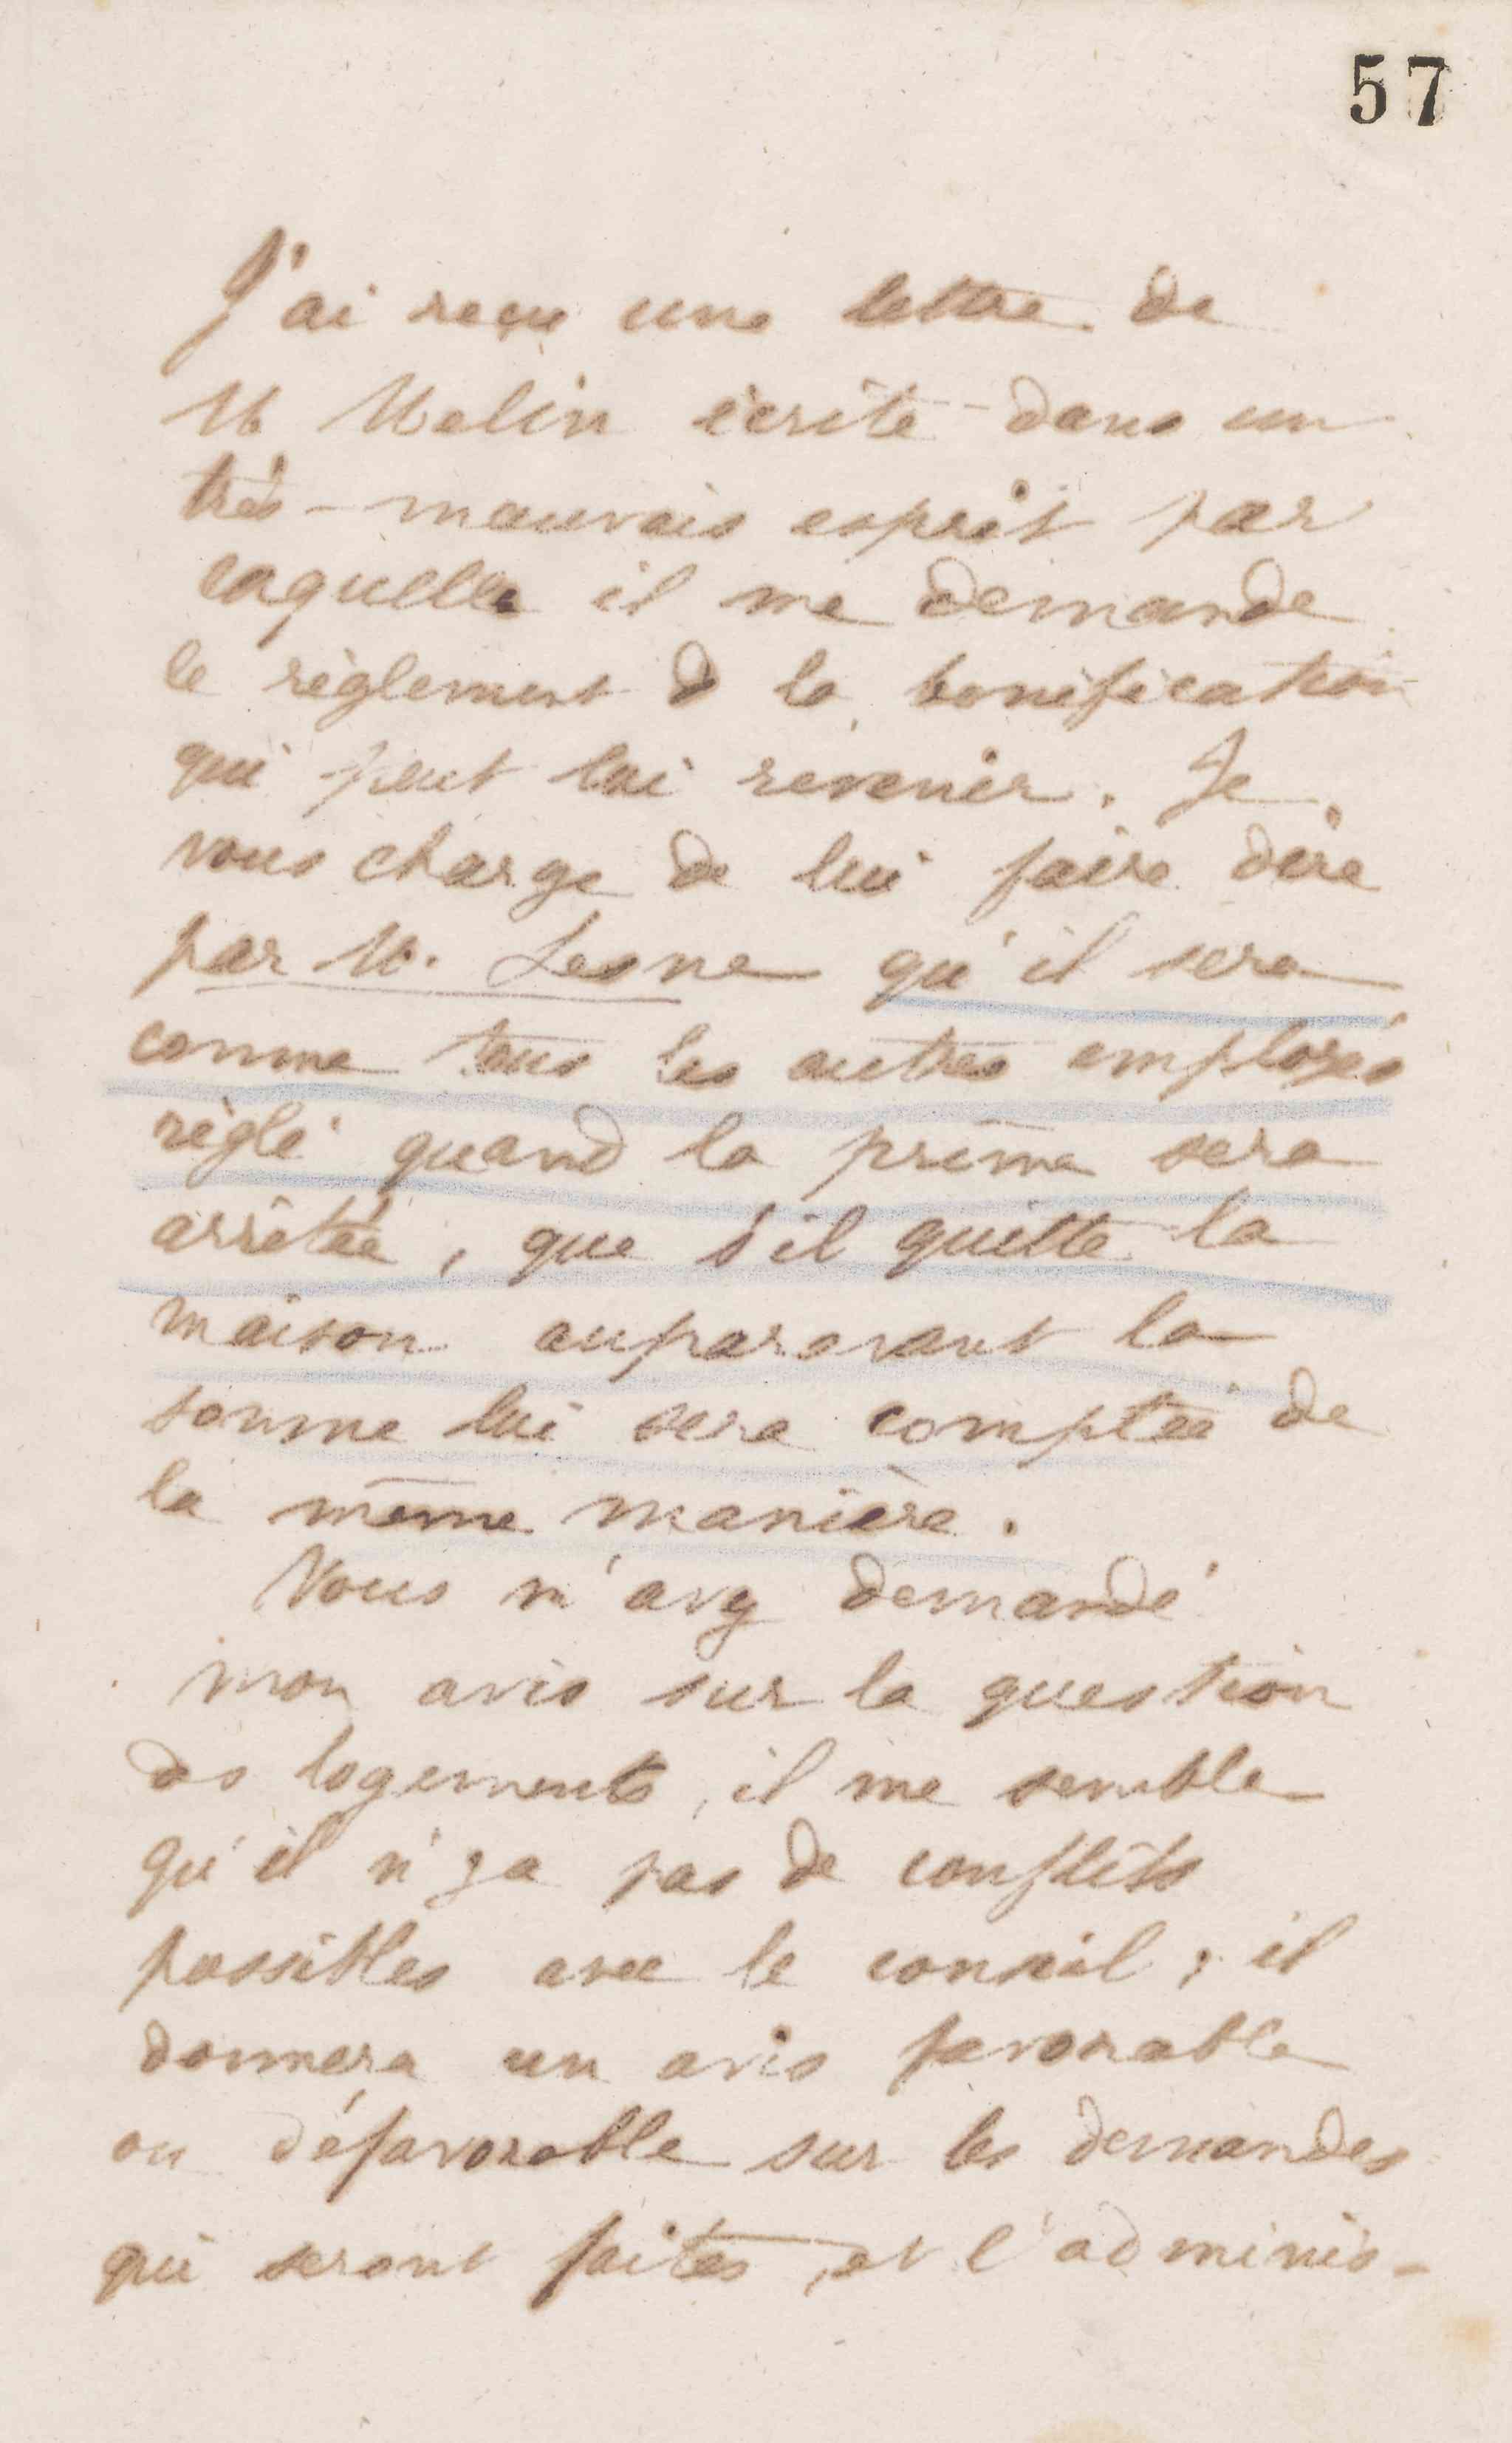 57
J'ai reçu une lettre de
M Malin écrite dans un
très-mauvais esprit par
laquelle il me demande
le règlement d la bonification
qui peut lui revenir. Je
vous charge de lui faire dire
par M. Lesne qu'il sera
comme tous les autres employés
règlé quand la prime sera
arrêtée, que s'il quitte la
maison auparavant la
somme lui sera comptée de
la même manière.
Vous m'avez demandé
mon avis sur la question
des logements, il me semble
qu'il n'y a pas de conflits
possibles avec le conseil ; il
donnera un avis favorable
ou défavorable sur les demandes
qui seront faites, et l'adminis-